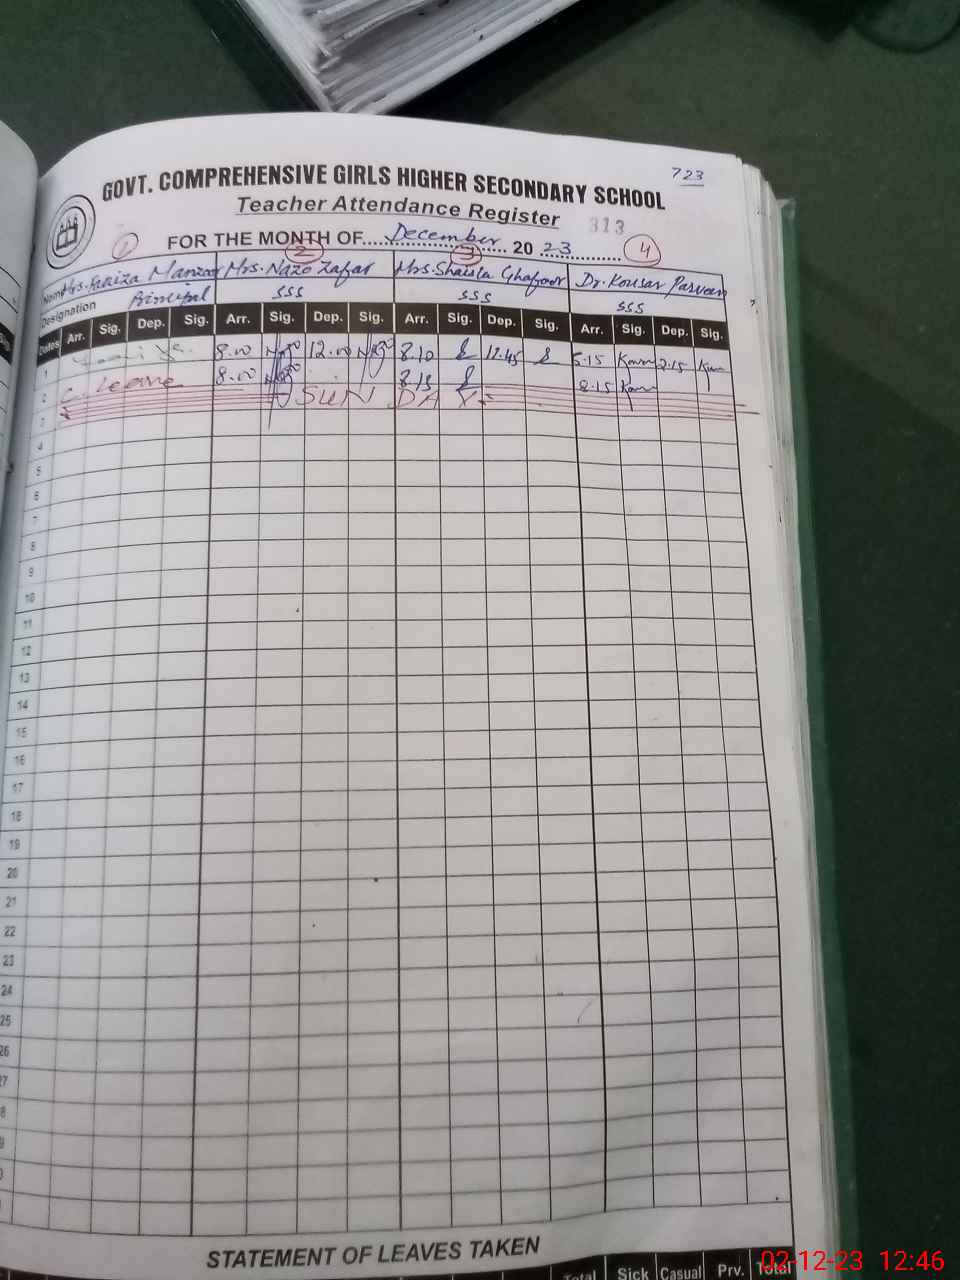 723
GOVT. COMPREHENSIVE GIRLS HIGHER SECONDARY SCHOOL
Teacher Attendance Register
313
1 FOR THE MONTH OF December 20 23 4
2 3
Name Mrs. Faiza Manzoor Mrs. Nazo Zafar Mrs. Shaista Ghafoor Dr. Kousar Parveen
Designation Principal SSS SSS SSS
Dates Arr. Sig. Dep. Sig. Arr. Sig. Dep. Sig. Arr. Sig. Dep. Sig. Arr. Sig. Dep. Sig.
1 8.00 12.00 8.10 12.45 8.15 2.15
2 C. Leave 8.00 8.15 8.15
3 SUN DAY
4
5
6
7
8
9
10
11
12
13
14
15
16
17
18
19
20
21
22
23
24
25
26
27
8
9
STATEMENT OF LEAVES TAKEN
Total Sick Casual Prv. Total
02-12-23 12:46